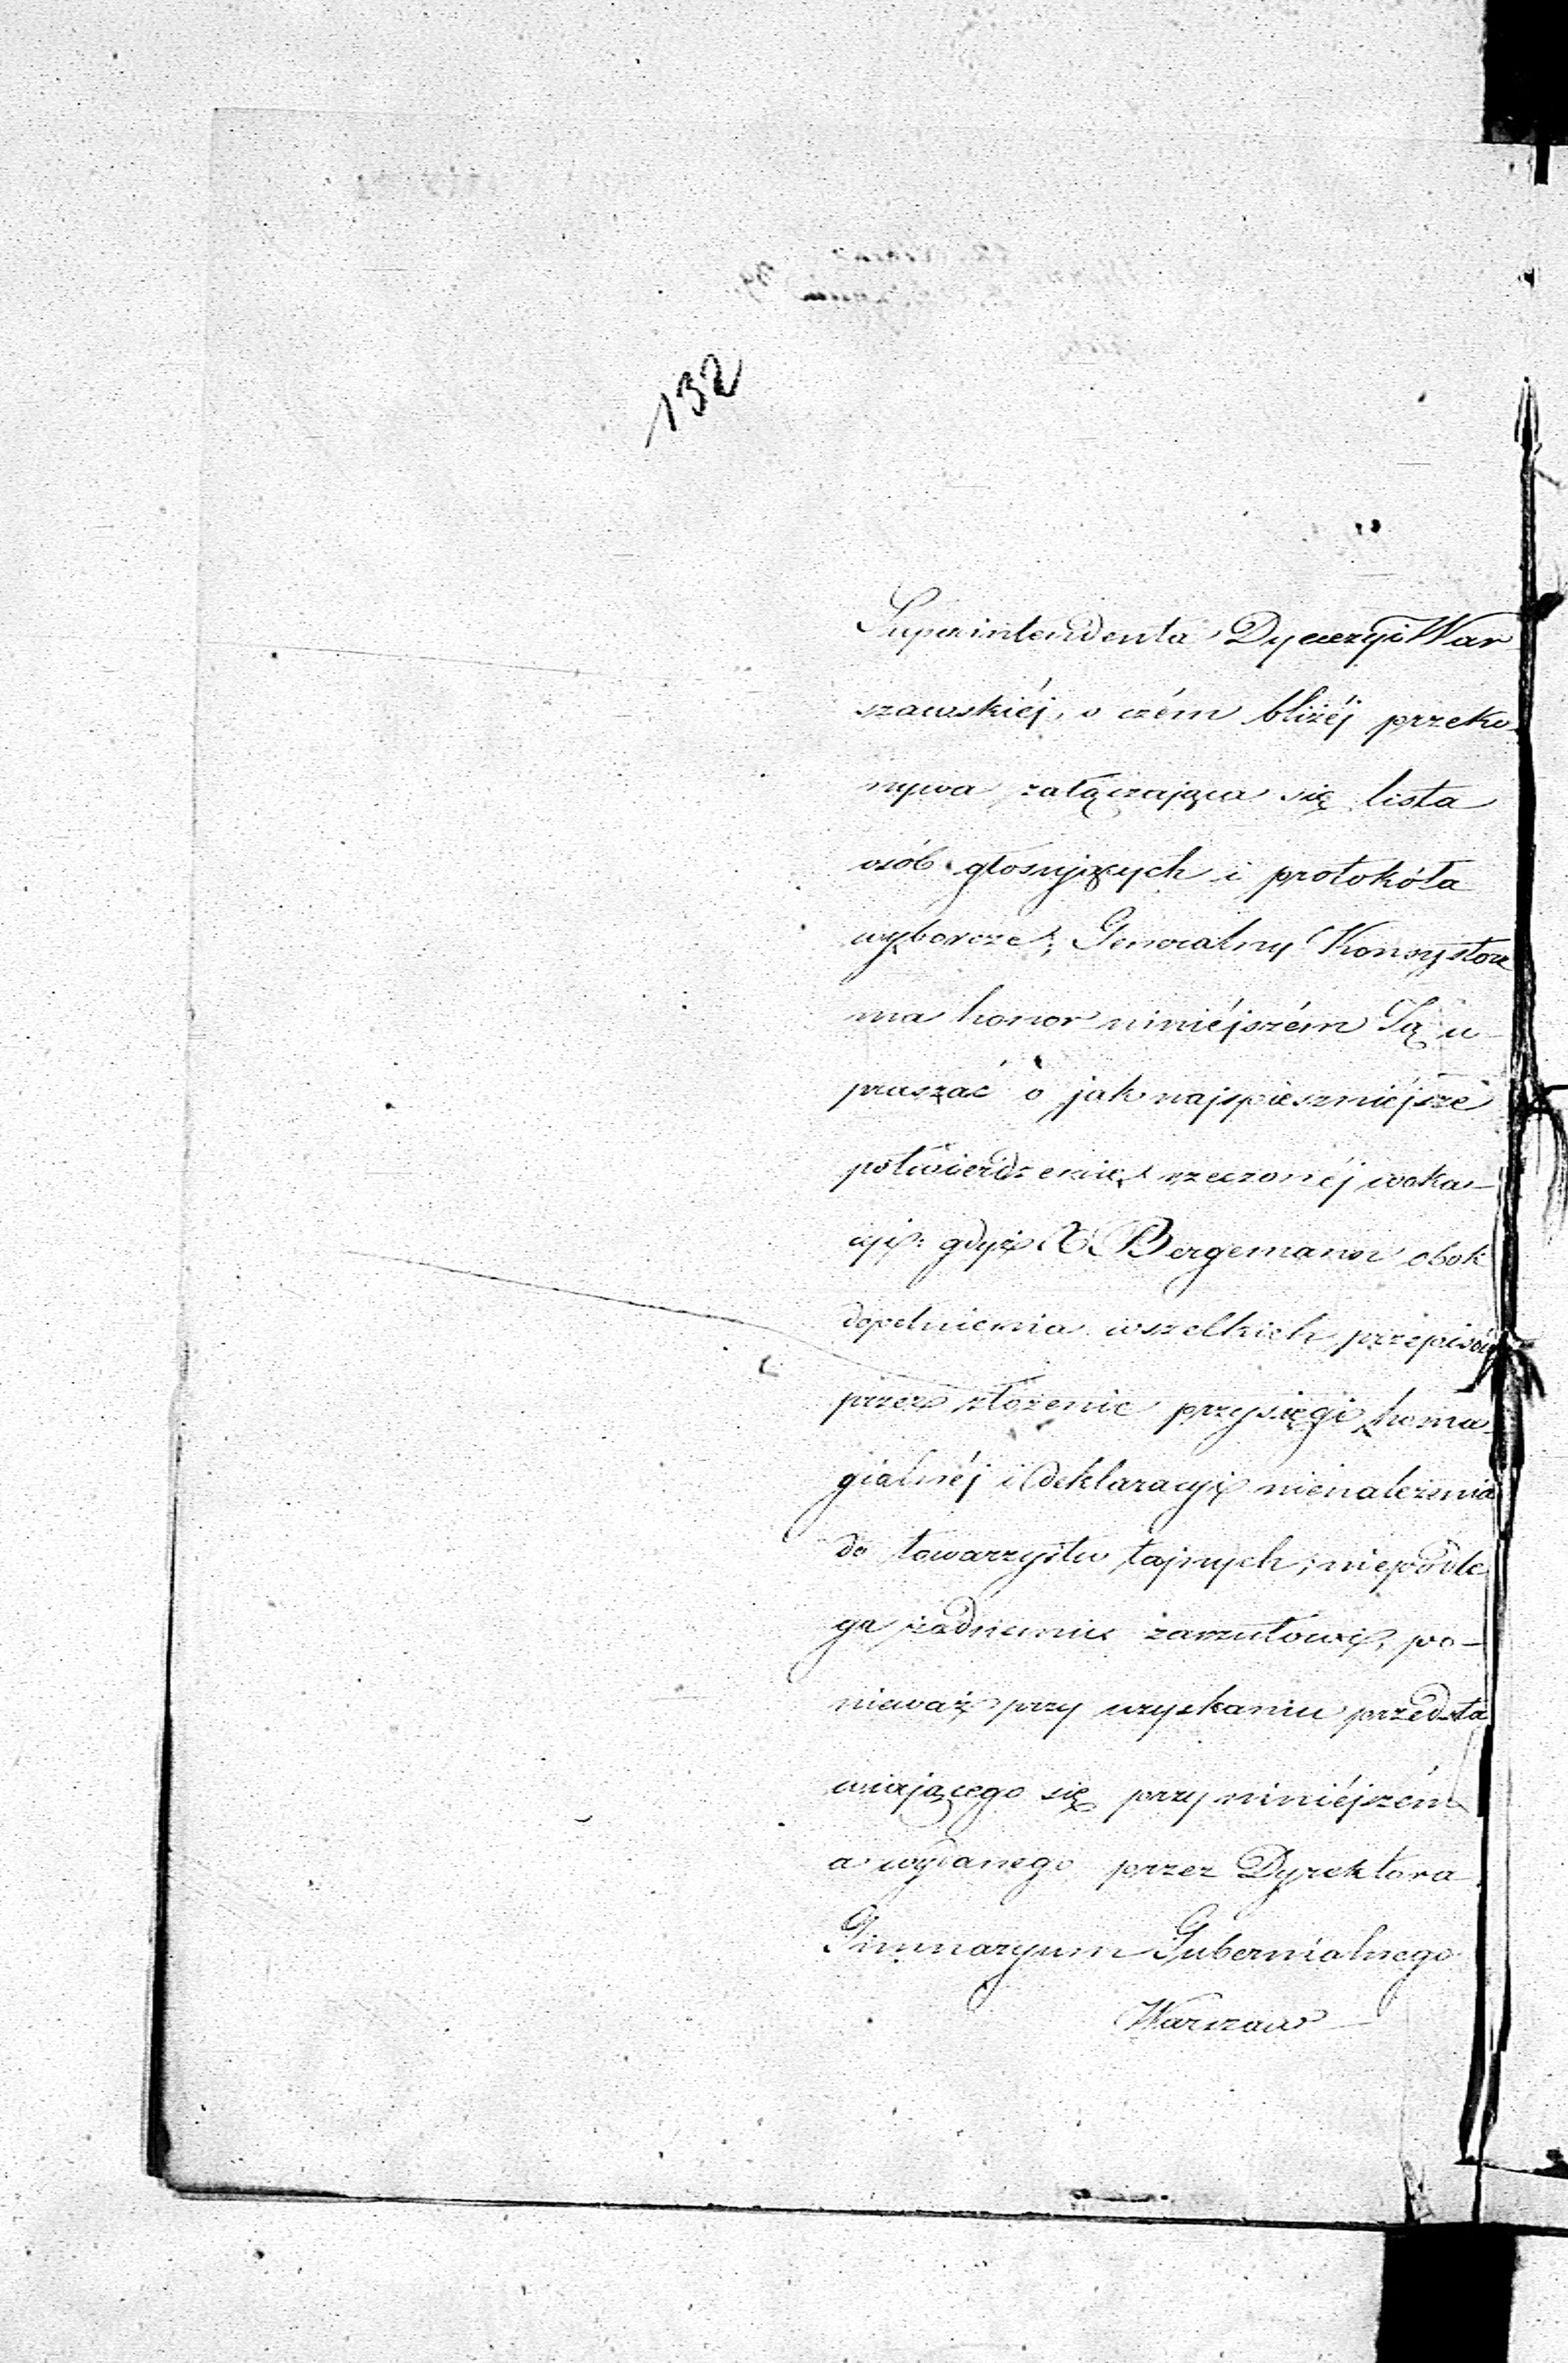 132
Superintendenta Dyecezyi War
szawskiéj, o czém bliżéj przeko-
nywa załączająca się lista
osób głosujących i protokóła
wyborcze; Generalny Konsystorz
ma honor niniéjszém Ją u-
praszać o jak najspieszniéjsze
potwierdzenie rzeczonéj woka-
cyi: gdyż X Bergemann obok
dopełnienia wszelkich przepisów
przez złożenie przysięgi homa-
gialnéj i deklaracyi nienależenia
do towarzystw tajnych; niepodle
ga żadnemu zarzutowi, po-
nieważ przy uzyskaniu przedsta
wiającego się przy niniéjszém
a wydanego przez Dyrektora
Gimnazyum Gubernialnego
Warszaw